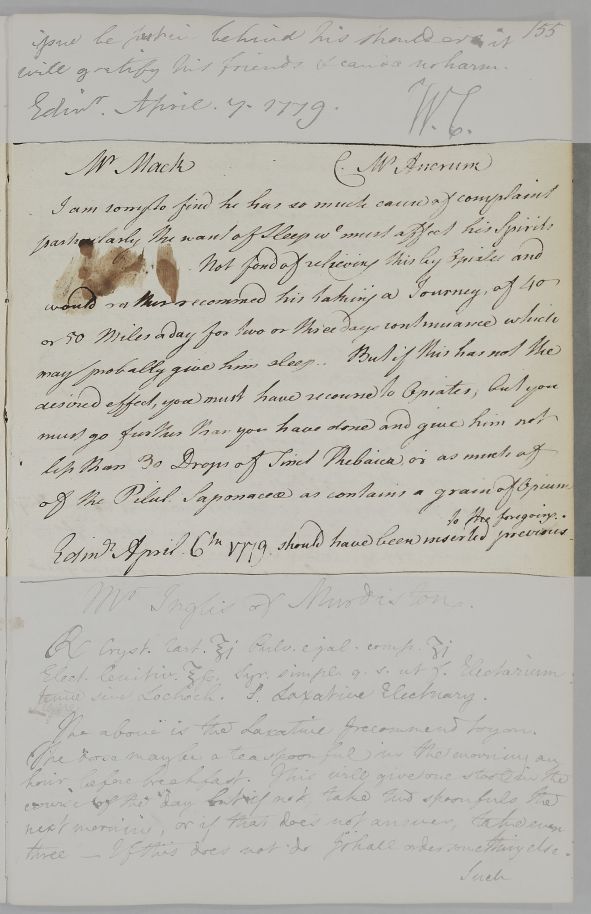 155
issue be putrein behind his shoulders it
will gratify his friends & can do no harm.
Edinr. April. 7. 1779. W.C.
Mr Mack C. Mr Ancrum
I am sorry to find he has so much cause of complaint
particularly the want of Sleep wc must affect his Spirits
Not fond of relieving this by Opiates and
would rather recommend his taking a Journey, of 40
or 50 Miles a day for two or three days continuance which
may probally give him sleep. But if this has not the
desired effect, you must have recourse to Opiates, but you
must go further than you have done and give him not
less than 30 Drops of Tinct Thebaica, or as much of
of the Pilul Saponaceæ as contains a grain of Opium
to the foregoing.
Edinr April 6th 1779. should have been inserted previous
Mr Inglis of Murdiston.
℞ Cryst. Tart. ℥j Pulv. e jal. comp. ℥j
Elect. Lenitiv. ℥ss, Syr. simpl. q. s. ut f. Electarium
tenue sive Lochoch. S. Laxative Electuary.
The above is the Laxative I recommend to you.
The dose may be a teaspoonful in the morning an
hour before breakfast. This will give one stool in the
course of the day but if not, take two spoonfuls the
next morning, or if that does not answer, take even
three — If this does not do I shall order something else.
Such